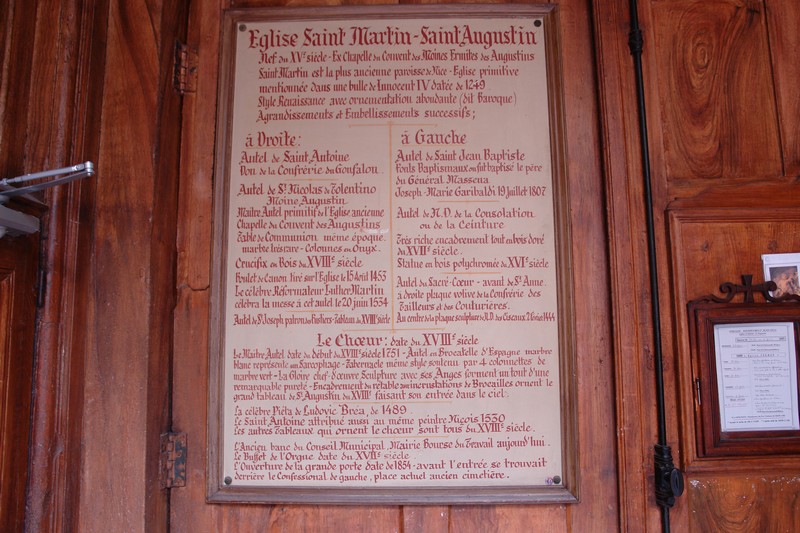 Eglise Saint Martin-Saint Augustin
Nef du XVe siècle - Ex Chapelle du Convent des Moines Ermites des Augustins
Saint Martin est la plus ancienne paroisse de Nice - Eglise primitive
mentionnée dans une bulle de Innocent IV datée de 1249
Style Renaissance avec ornementation abondante (dit Baroque)
Agrandissements et Embellissements successifs;
à Droite:
Autel de Saint Antoine
Don de la Confrérie du Gonfalon
Autel de St Nicolas de Tolentino
Moine Augustin
Maître Autel primitif de l'Eglise ancienne
Chapelle du Convent des Augustins
Table de Communion même époque
marbre très rare - Colonnes en Onyx.
Crucifix en Bois du XVIIIe siècle
Boulet de Canon tiré sur l'Eglise le 15 Août 1453
Le célèbre Réformateur Luther Martin
célébra la messe à cet autel le 20 juin 1534
Autel de St Joseph patron des Fustiers - Tableau du XVIIIe siècle
à Gauche
Autel de Saint Jean Baptiste
Fonts Baptismaux où fut baptisé le père
du Général Massena
Joseph-Marie Garibaldi 19 juillet 1807
Autel de N.D. de la Consolation
ou de la Ceinture
Très riche encadrement tout en bois doré
du XVIIe siècle.
Statue en bois polychromée du XVIe siècle
Autel du Sacré-Cœur - avant de Ste Anne
à droite plaque votive de la Confrérie des
Tailleurs et des Couturières.
Au centre de la plaque sculpture N.D. des Ciseaux 2 février 1444
Le Chœur: date du XVIIIe siècle
Le Maître Autel date du début du XVIIIe siècle 1751 - Autel en Brocatelle d'Espagne marbre
blanc représente un Sarcophage - Tabernacle même style soutenu par 4 colonnettes de
marbre vert - La Gloire chef-d'œuvre Sculpture avec ses Anges forment un tout d'une
remarquable pureté - Encadrement du rétable aux incrustations de Brocailles ornent le
grand tableau de St Augustin du XVIIIe faisant son entrée dans le ciel.
La célèbre Piéta de Ludovic Bréa, de 1489
Le Saint Antoine attribué aussi au même peintre Niçois 1530
Les autres Tableaux qui ornent le chœur sont tous du XVIIIe siècle.
L'Ancien banc du Conseil Municipal, Mairie Bourse du Travail aujourd'hui.
Le Buffet de l'Orgue date du XVIIe siècle
L'Ouverture de la grande porte date de 1854 - avant l'entrée se trouvait
derrière le Confessional de gauche, place actuel ancien cimetière.